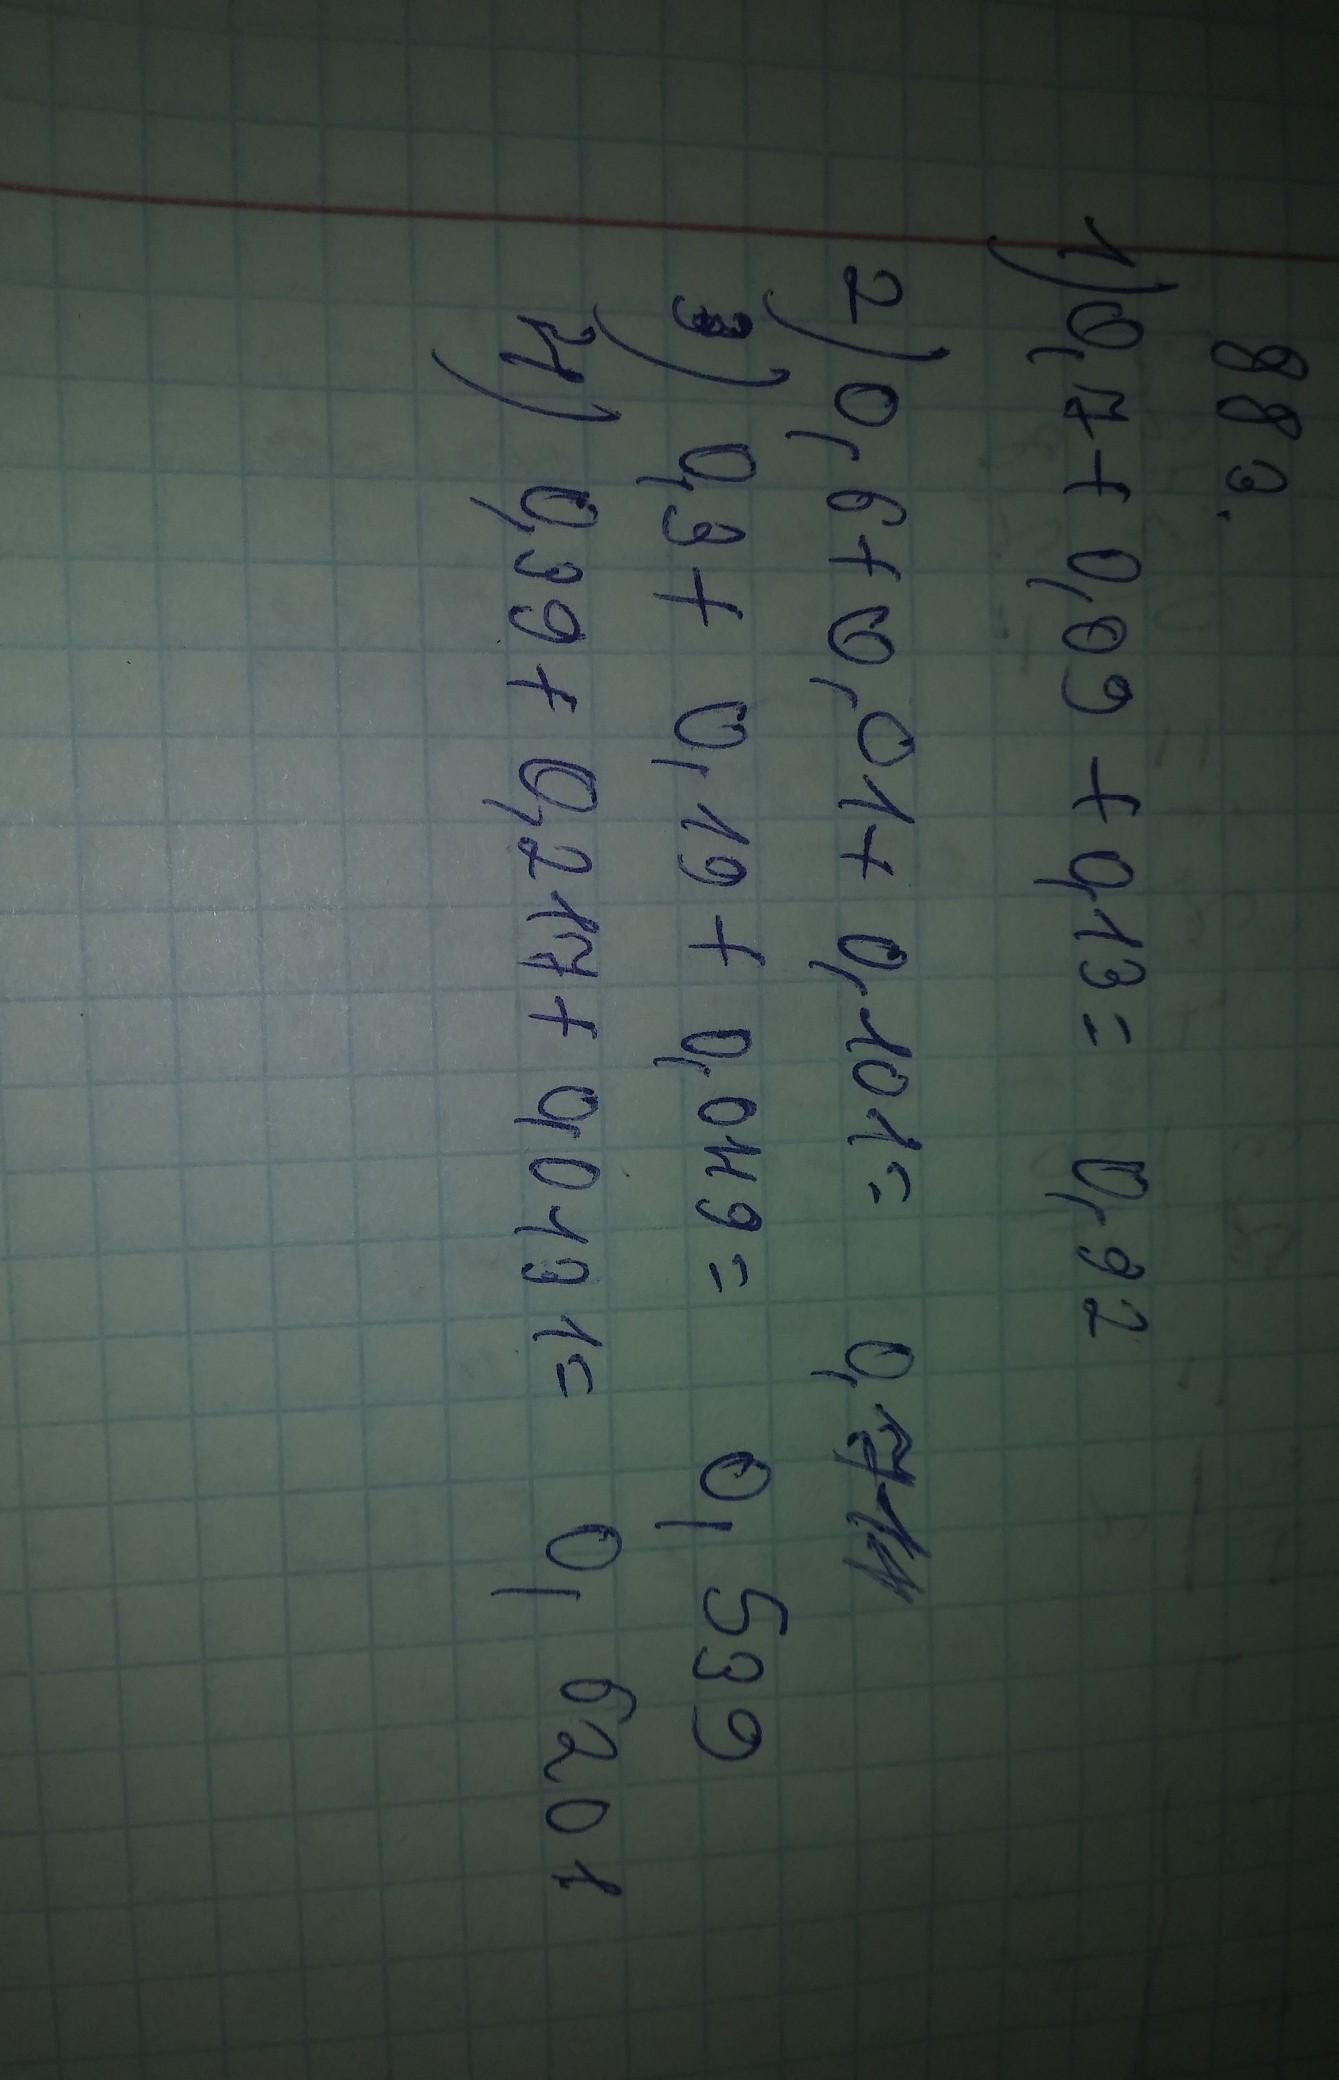 883.
1) 0,7+ 0,09 + 0,13 = 0,92
2) 0,6+0,01+ 0,101= 0,711
3) 0,3+ 0,19+ 0,049= 0,539
4) 0,39+ 0,217+ 0,0131= 0,6201